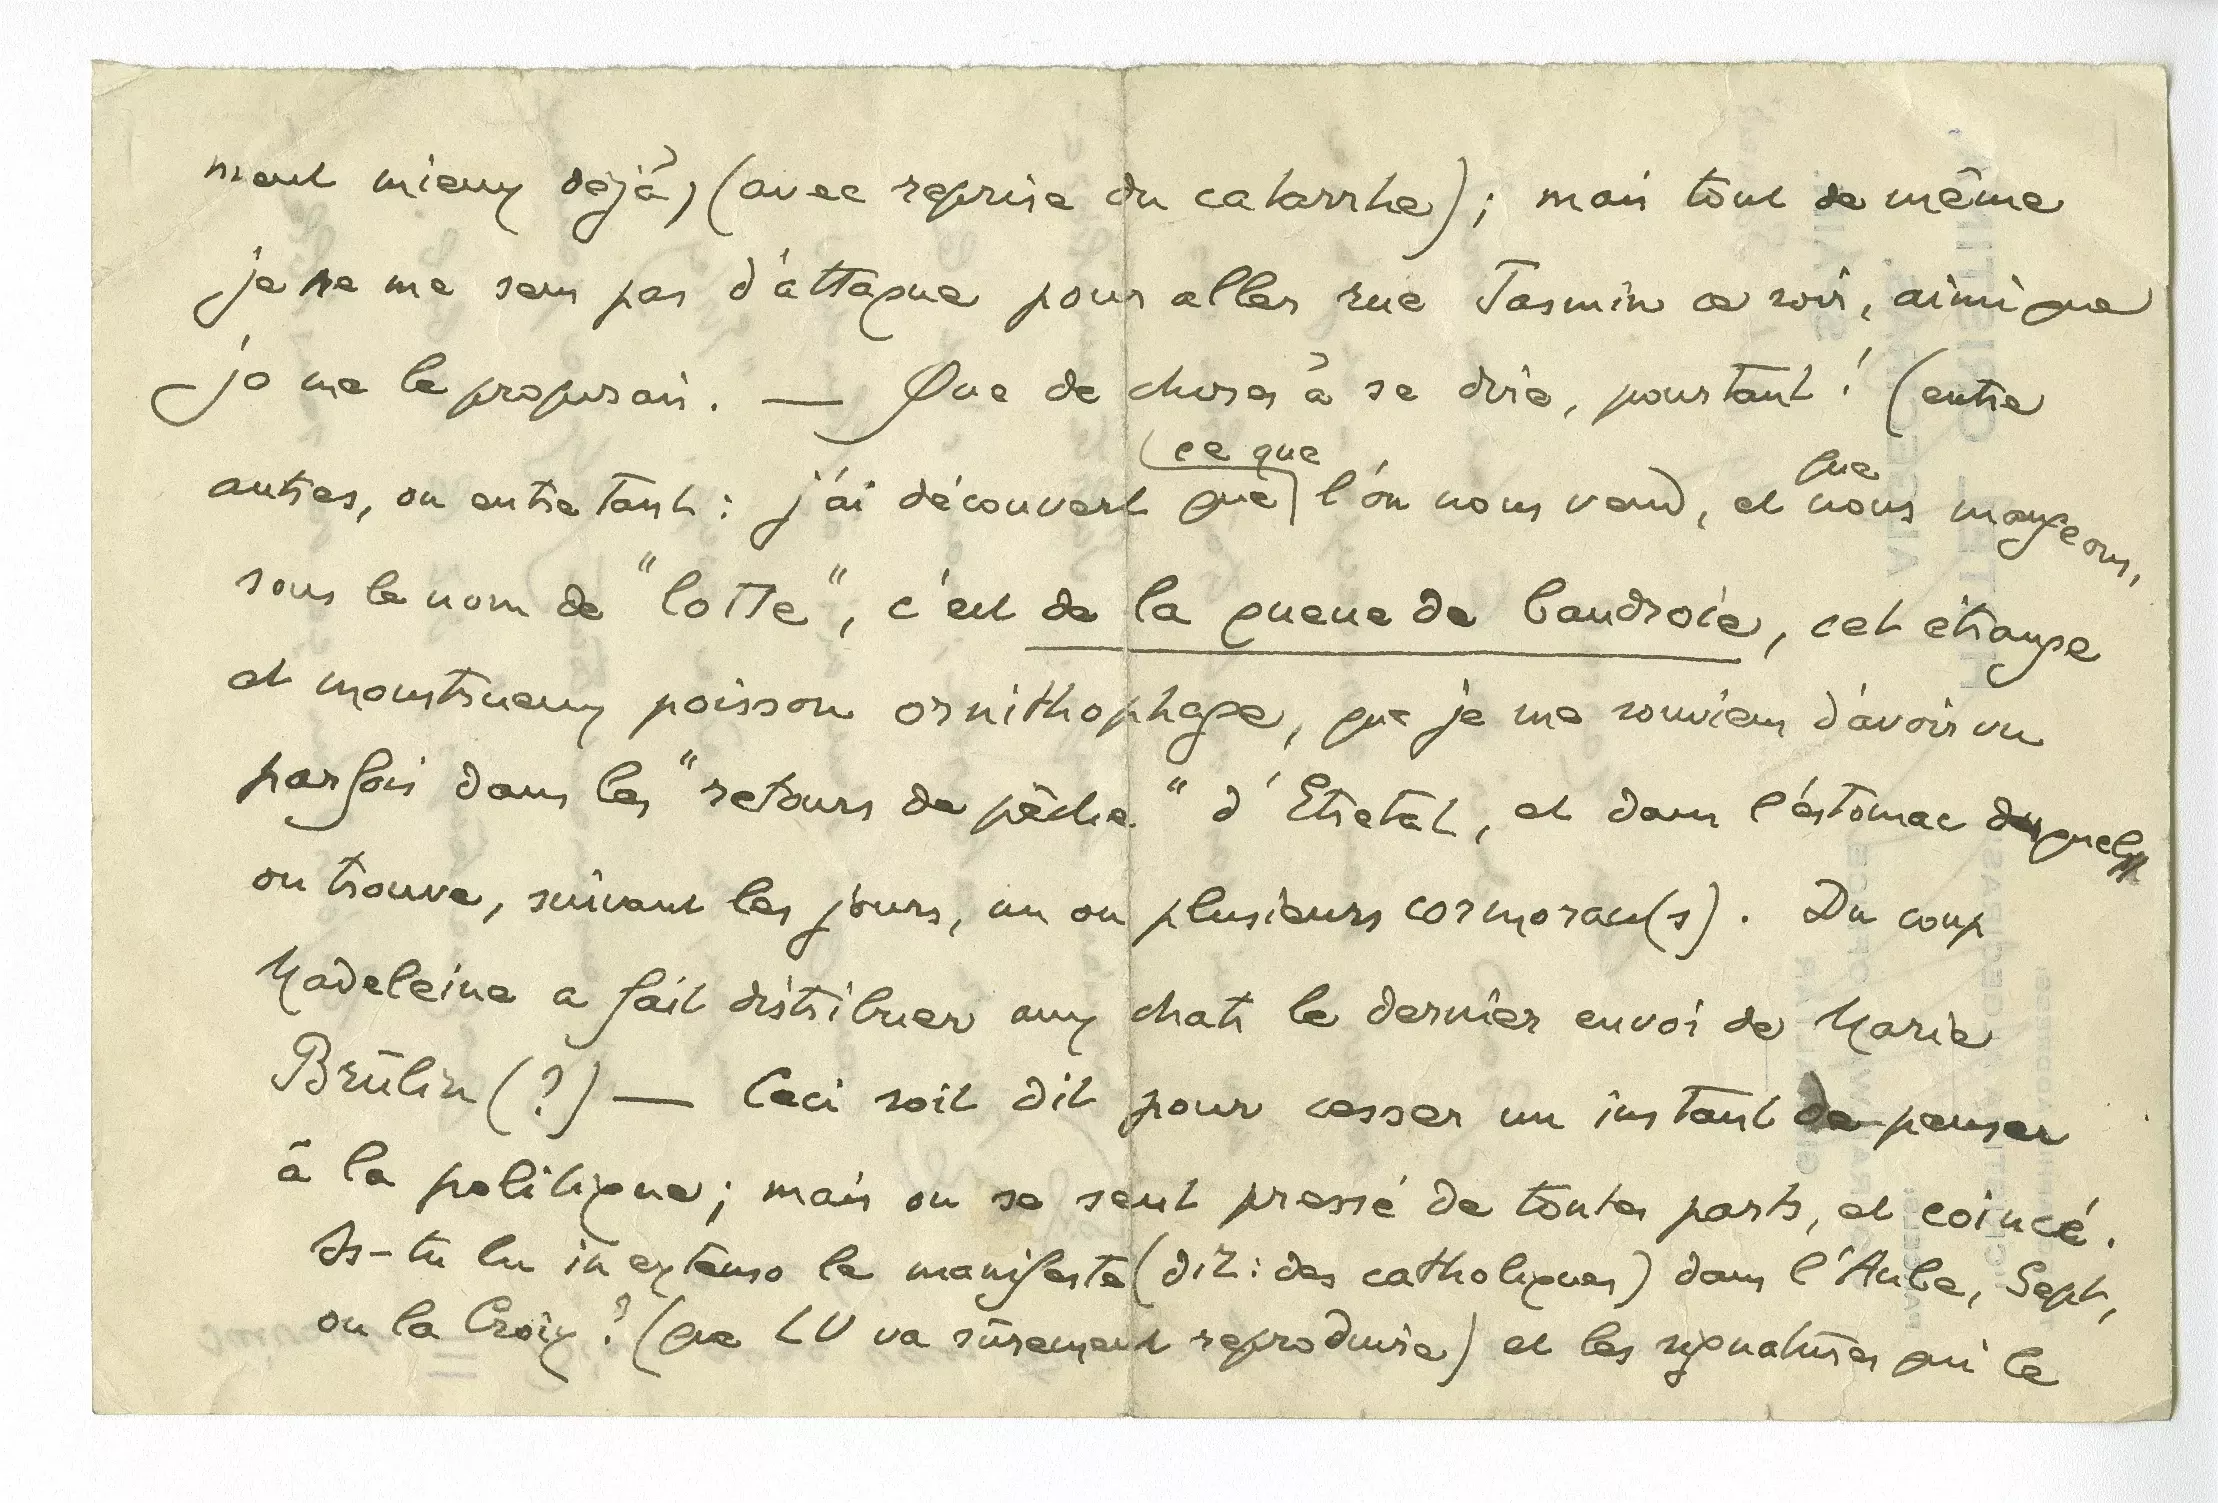 ment mieux déjà, (avec reprise du catarrhe) ; mais tout de même
je ne me sens pas d'attaque pour aller rue Jasmin ce soir, ainsi que
je me le proposais. — Que de choses à se dire, pourtant ! (entre
ce que que
autres, ou entre tant : j'ai découvert que l'on nous vend, et nous mangeons,
sous le nom de "lotte", c'est de la queue de baudroie, cet étrange
et monstrueux poisson ornithophage, que je me souviens d'avoir vu
parfois dans les "retours de pêche" d'Etretat, et dans l'estomac duquel
on trouve, suivant les jours, un ou plusieurs cormoran(s). Du coup
Madeleine a fait distribuer aux chats le dernier envoi de Marie
Brûlin (?) — Ceci soit dit pour cesser un instant de penser
à la politique ; mais on se sent pressé de toutes parts, et coincé.
As-tu lu in extenso le manifeste (dit : des catholiques) dans l'Aube, Sept,
ou la Croix ? (que LV va sûrement reproduire) et les signatures qui le